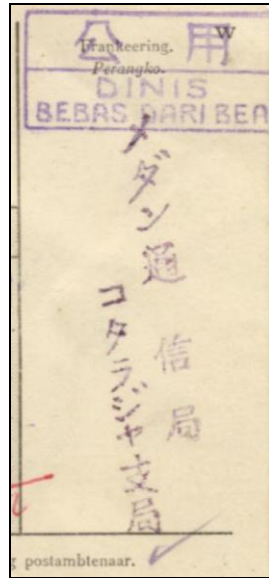 公用
W
Frankeering.
Perangko.
DINIS
BEBAS DARI BEA
メダン通信局
コタラジヤ支局
postambtenaar.